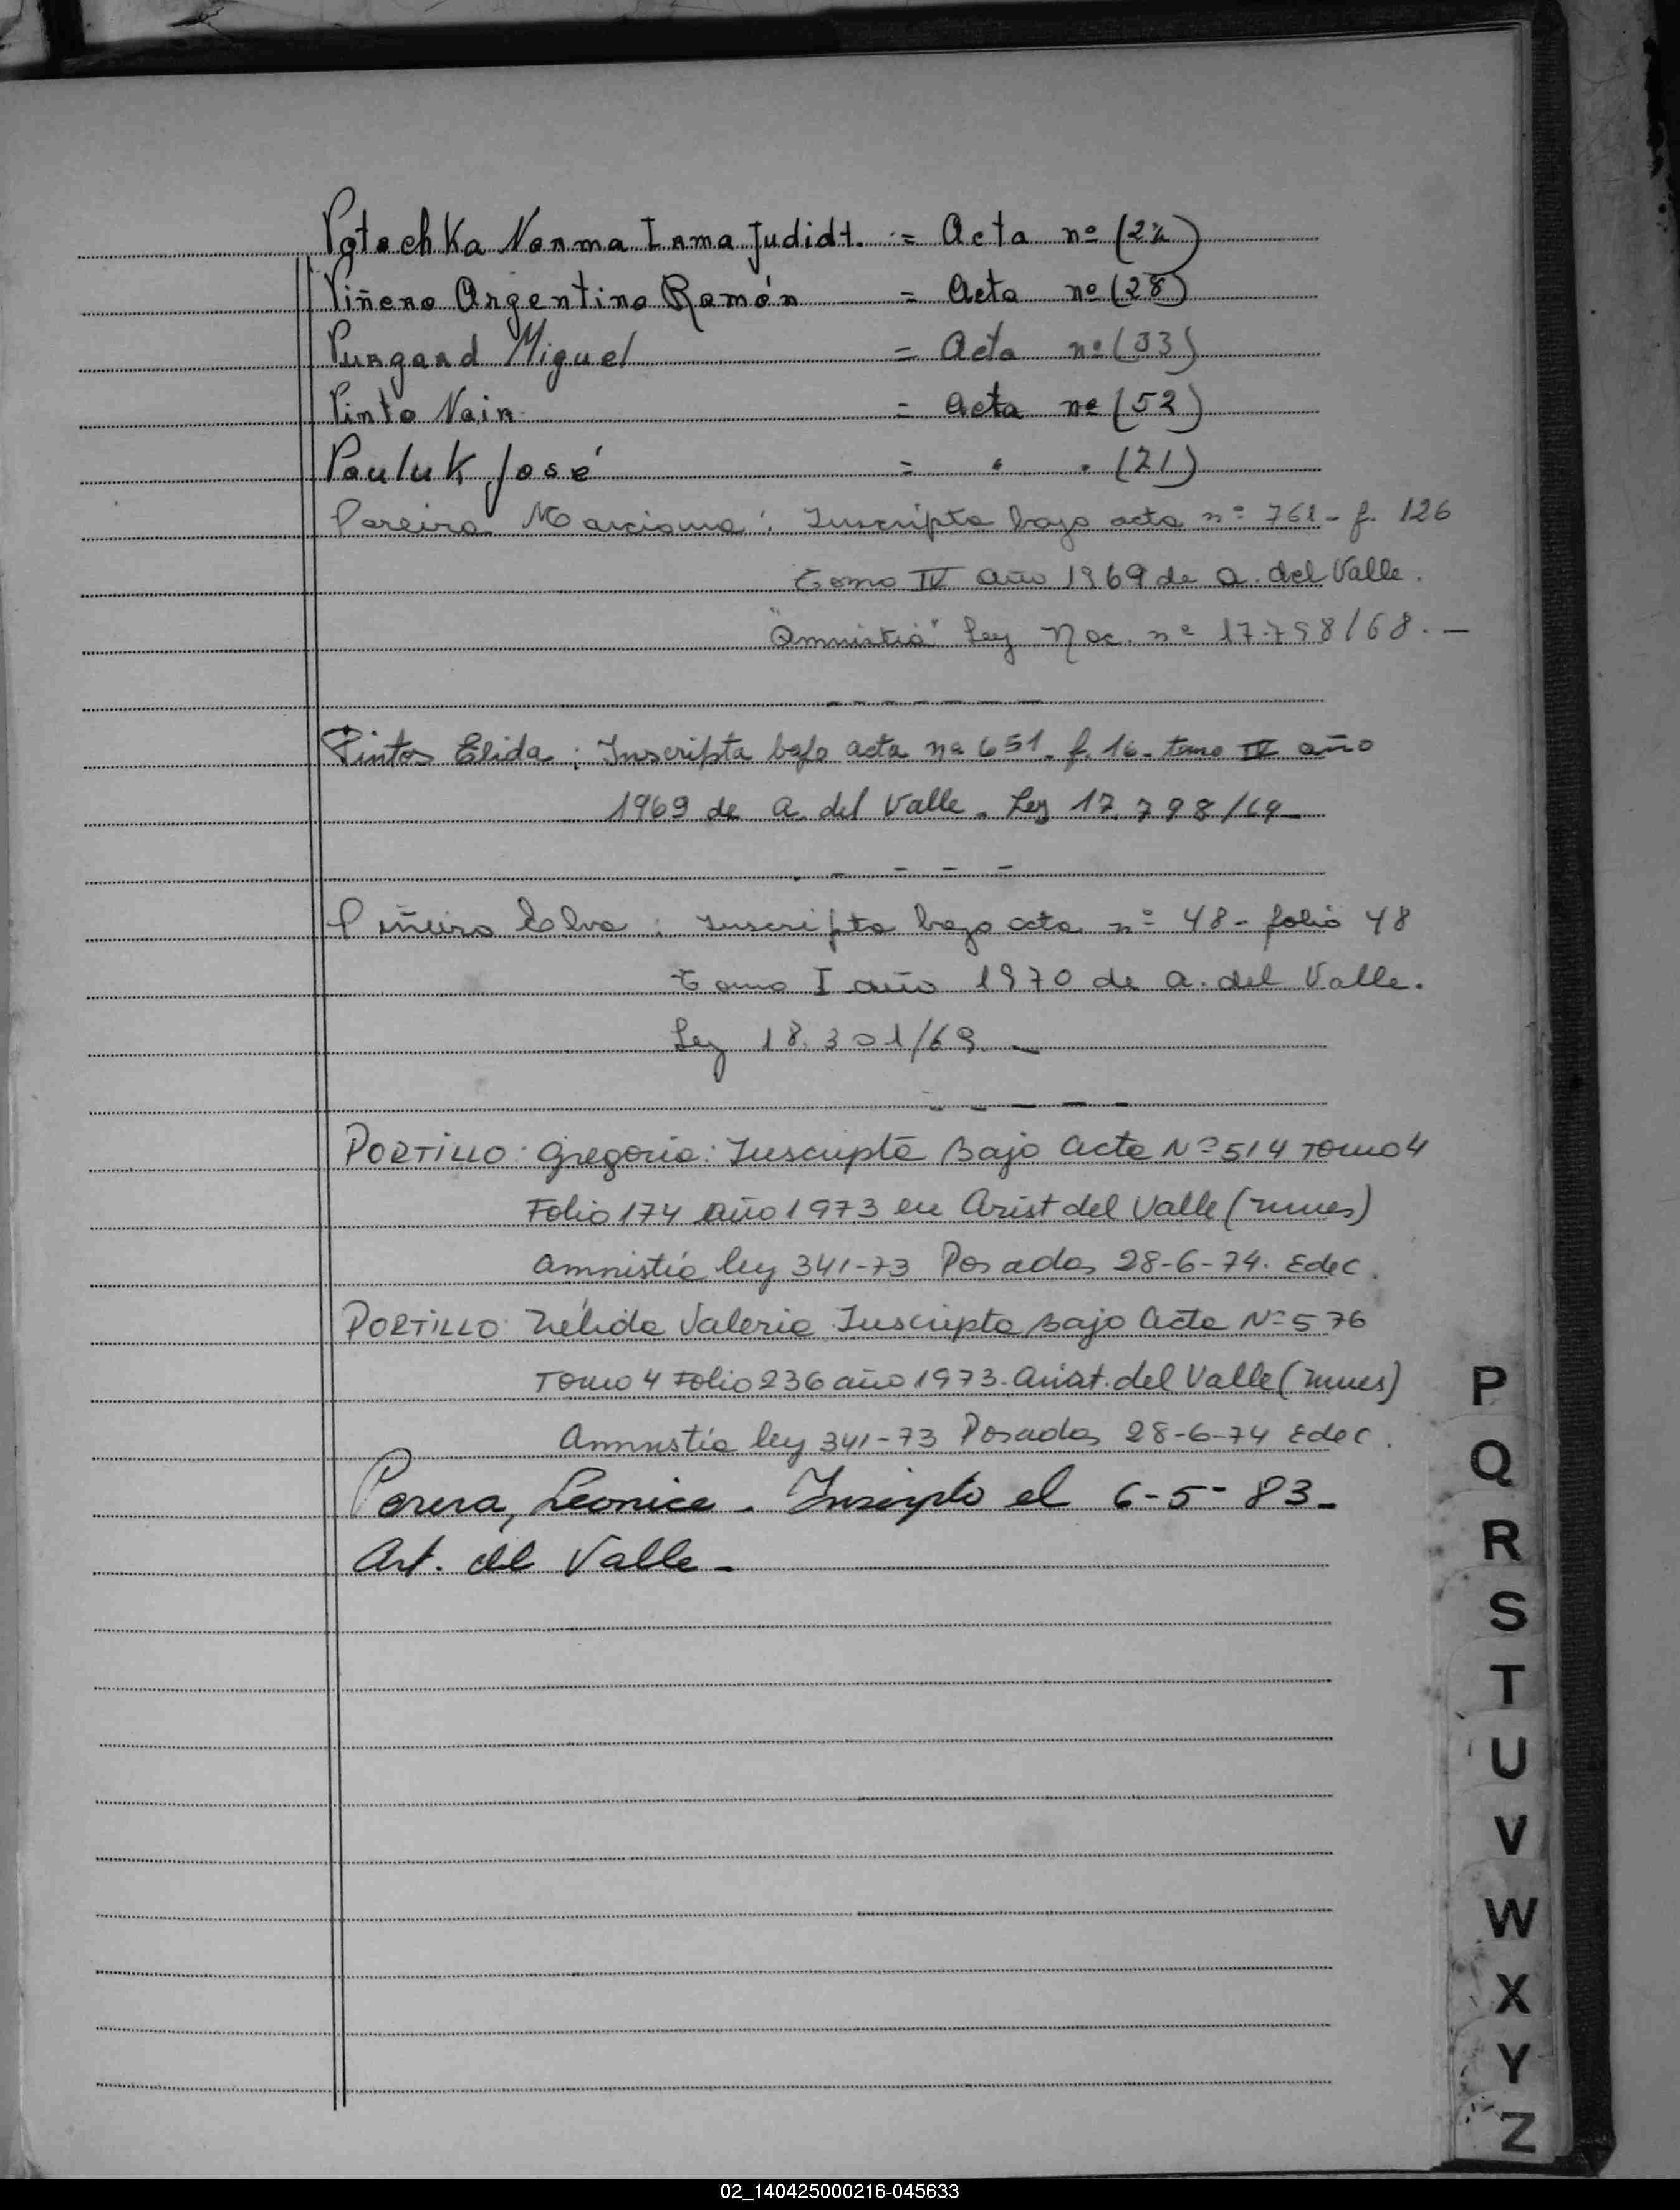 Potochka Norma Irma Judidt. = Acta nº (24)
Piñero Argentino Ramón = Acta nº (28)
Purgard Miguel = Acta nº (33)
Pinto Nair = Acta nº (52)
Pauluk José = " " (21)
Pereira Marciana: Inscripta bajo acta nº 761 - f. 126
tomo IV año 1969 de A. del Valle.
"Amnistia" Ley Nac. nº 17.798/68. —
Pintos Elida: Inscripta bajo acta nº 651. f. 16. tomo IV año
1969 de A. del Valle. Ley 17.798/69
Piñeiro Elva: Inscripta bajo acta nº 48 - folio 48
tomo I año 1970 de A. del Valle.
Ley 18.301/69. —
PORTILLO: Gregoria: Inscripta Bajo Acta Nº 514 Tomo 4
Folio 174 año 1973 en Arist del Valle (mnes)
Amnistía ley 341-73 Posadas 28-6-74. Edec.
PORTILLO: Nélida Valeria Inscripta Bajo Acta Nº 576
Tomo 4 Folio 236 año 1973. Arist. del Valle (mnes)
Amnistía ley 341-73 Posadas 28-6-74 Edec.
Perera, Leonice. Inscripto el 6-5-83-
Art. del Valle -
P
Q
R
S
T
U
V
W
X
Y
Z
02_140425000216-045633